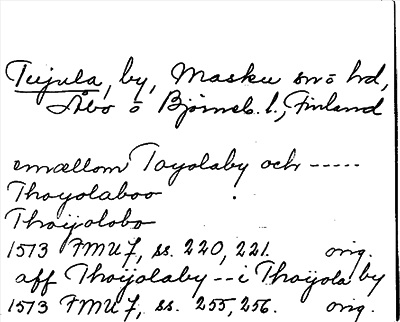 Tujula, by, Masku sn o hd,
Åbo o Björneb. l., Finland
emællom Toyolaby och -----
Thoyolaboo
Thoijolobo
1573 FMU 7, ss. 220, 221. orig.
aff Thoijolaby -- i Thoijola by
1573 FMU 7, ss. 255, 256. orig.